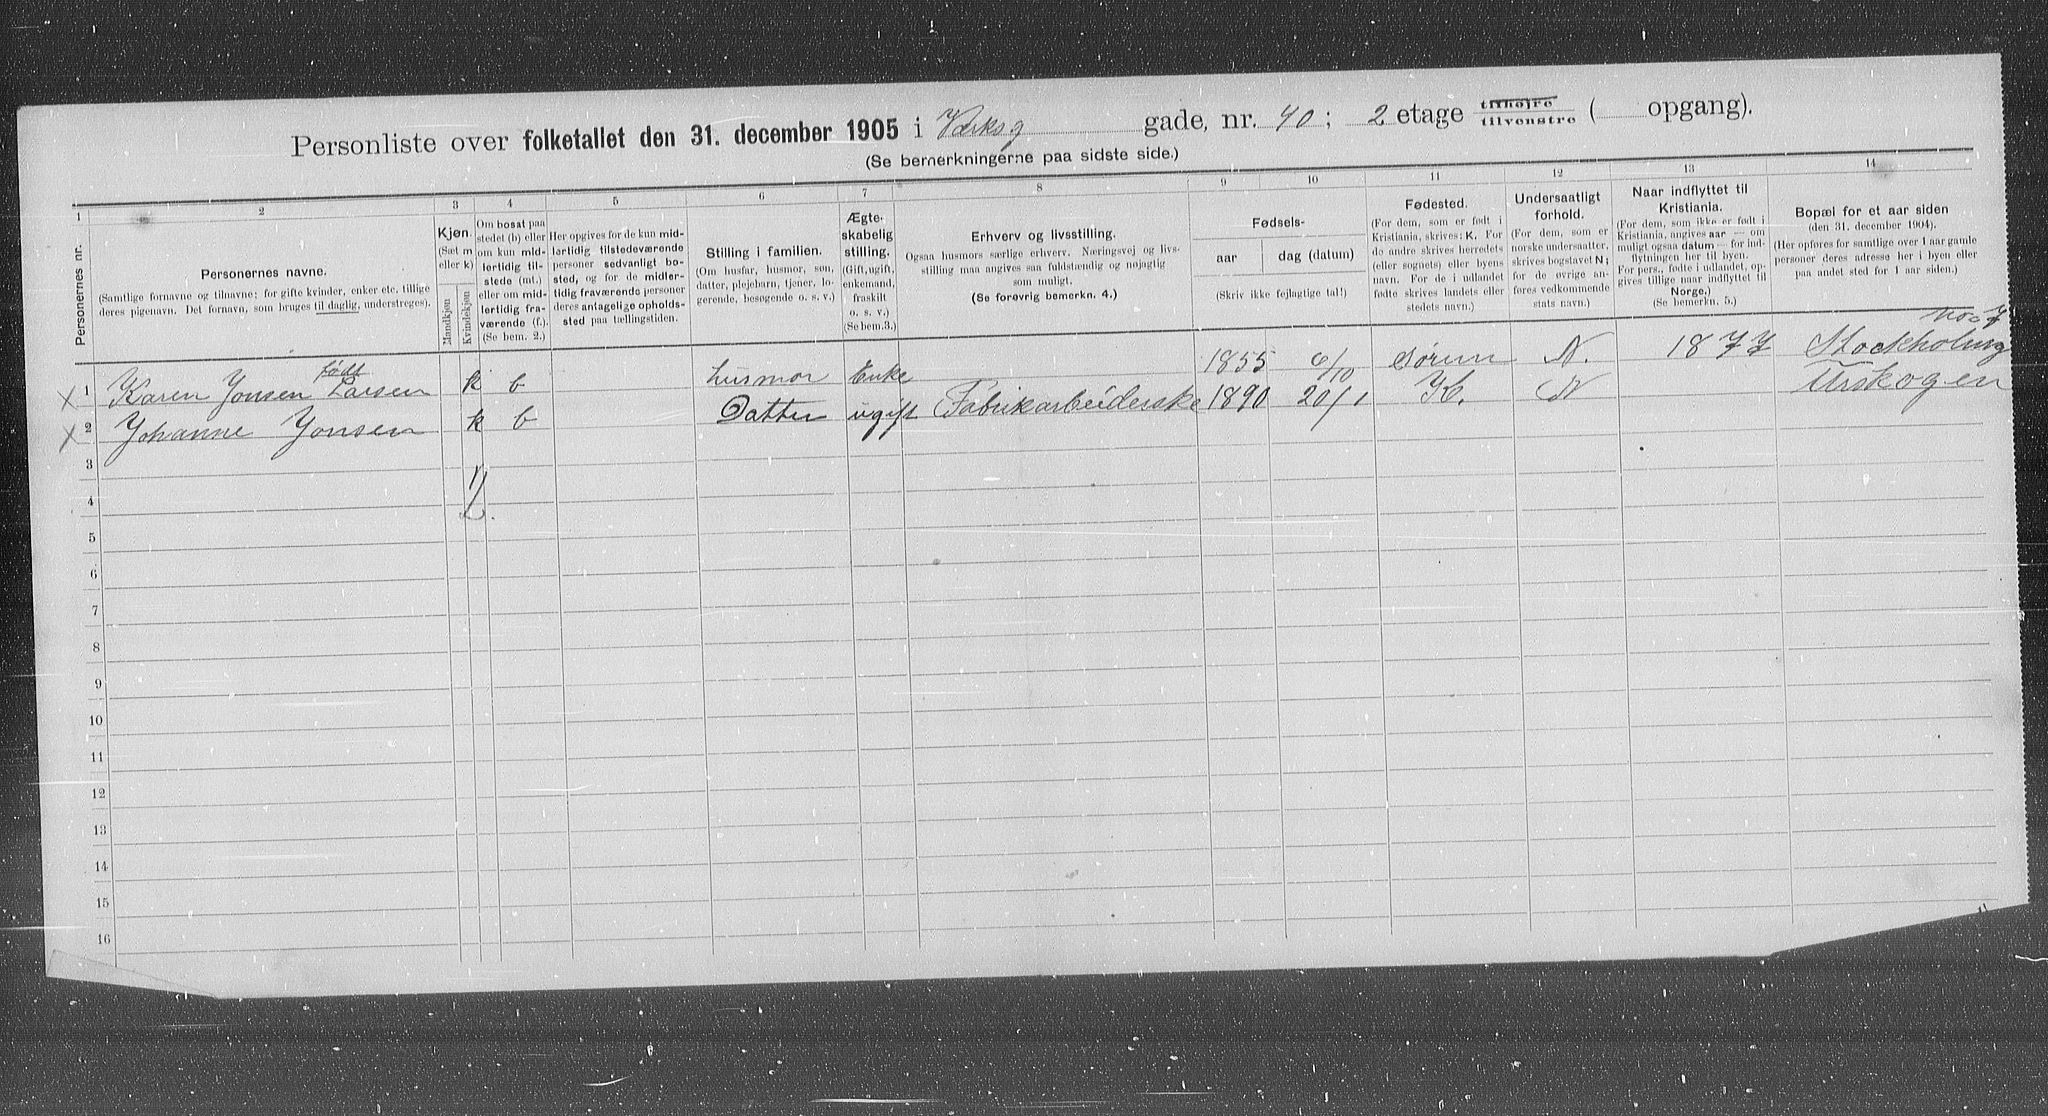 Personliste over folketallet den 31. december 1905 i Verksg gade, nr. 40; 2 etage tilhøjre tilvenstre ( opgang).
(Se bemerkningerne paa sidste side.)
1 2 3 4 5 6 7 8 9 10 11 12 13 14
Personernes nr.
Personernes navne.
(Samtlige fornavne og tilnavne; for gifte kvinder, enker etc. tillige
deres pigenavn. Det fornavn, som bruges til daglig, understreges).
Kjøn.
(Sæt m
eller k)
Mandkjøn
Kvindekjøn
Om bosat paa
stedet (b) eller
om kun mid-
lertidig til-
stede (mt.)
eller om mid-
lertidig fra-
værende (f.).
(Se bem. 2.)
Her opgives for de kun mid-
lertidig tilstedeværende
personer sedvanligt bo-
sted, og for de midler-
tidig fraværende personer
deres antagelige opholds-
sted paa tællingstiden.
Stilling i familien.
(Om husfar, husmor, søn,
datter, plejebarn, tjener, lo-
gerende, besøgende o. s. v.)
Ægte-
skabelig
stilling.
(Gift, ugift,
enkemand,
fraskilt
o. s. v.)
(Se bem. 3.)
Erhverv og livsstilling.
Ogsaa husmors særlige erhverv. Næringsvej og livs-
stilling maa angives saa fuldstændig og nøjagtig
som muligt.
(Se forøvrig bemerkn. 4.)
Fødsels-
aar dag (datum)
(Skriv ikke fejlagtige tal!)
Fødested.
(For dem, som er født i
Kristiania, skrives: K. For
de andre skrives herredets
(eller sognets) eller byens
navn. For de i udlandet
fødte skrives landets eller
stedets navn.)
Undersaatligt
forhold.
(For dem, som er
norske undersaatter,
skrives bogstavet N;
for de øvrige an-
føres vedkommende
stats navn.)
Naar indflyttet til
Kristiania.
(For dem, som ikke er født i
Kristiania, angives aar — om
muligt ogsaa datum — for ind-
flytningen her til byen.
For pers., født i udlandet, op-
gives tillige naar indflyttet til
Norge.)
(Se bemerkn. 5.)
Bopæl for et aar siden
(den 31. december 1904).
(Her opføres for samtlige over 1 aar gamle
personer deres adresse her i byen eller
paa andet sted for 1 aar siden.)
X 1 Karen Jonsen født Larsen k b husmor Enke 1855 6/10 Sørum N. 1877 Stockholmg No 7
X 2 Johanne Jonsen k b Datter ugift Fabrikarbeiderske 1890 20/1 K. N Urskogen
3
4
5
6
7
8
9
10
11
12
13
14
15
16